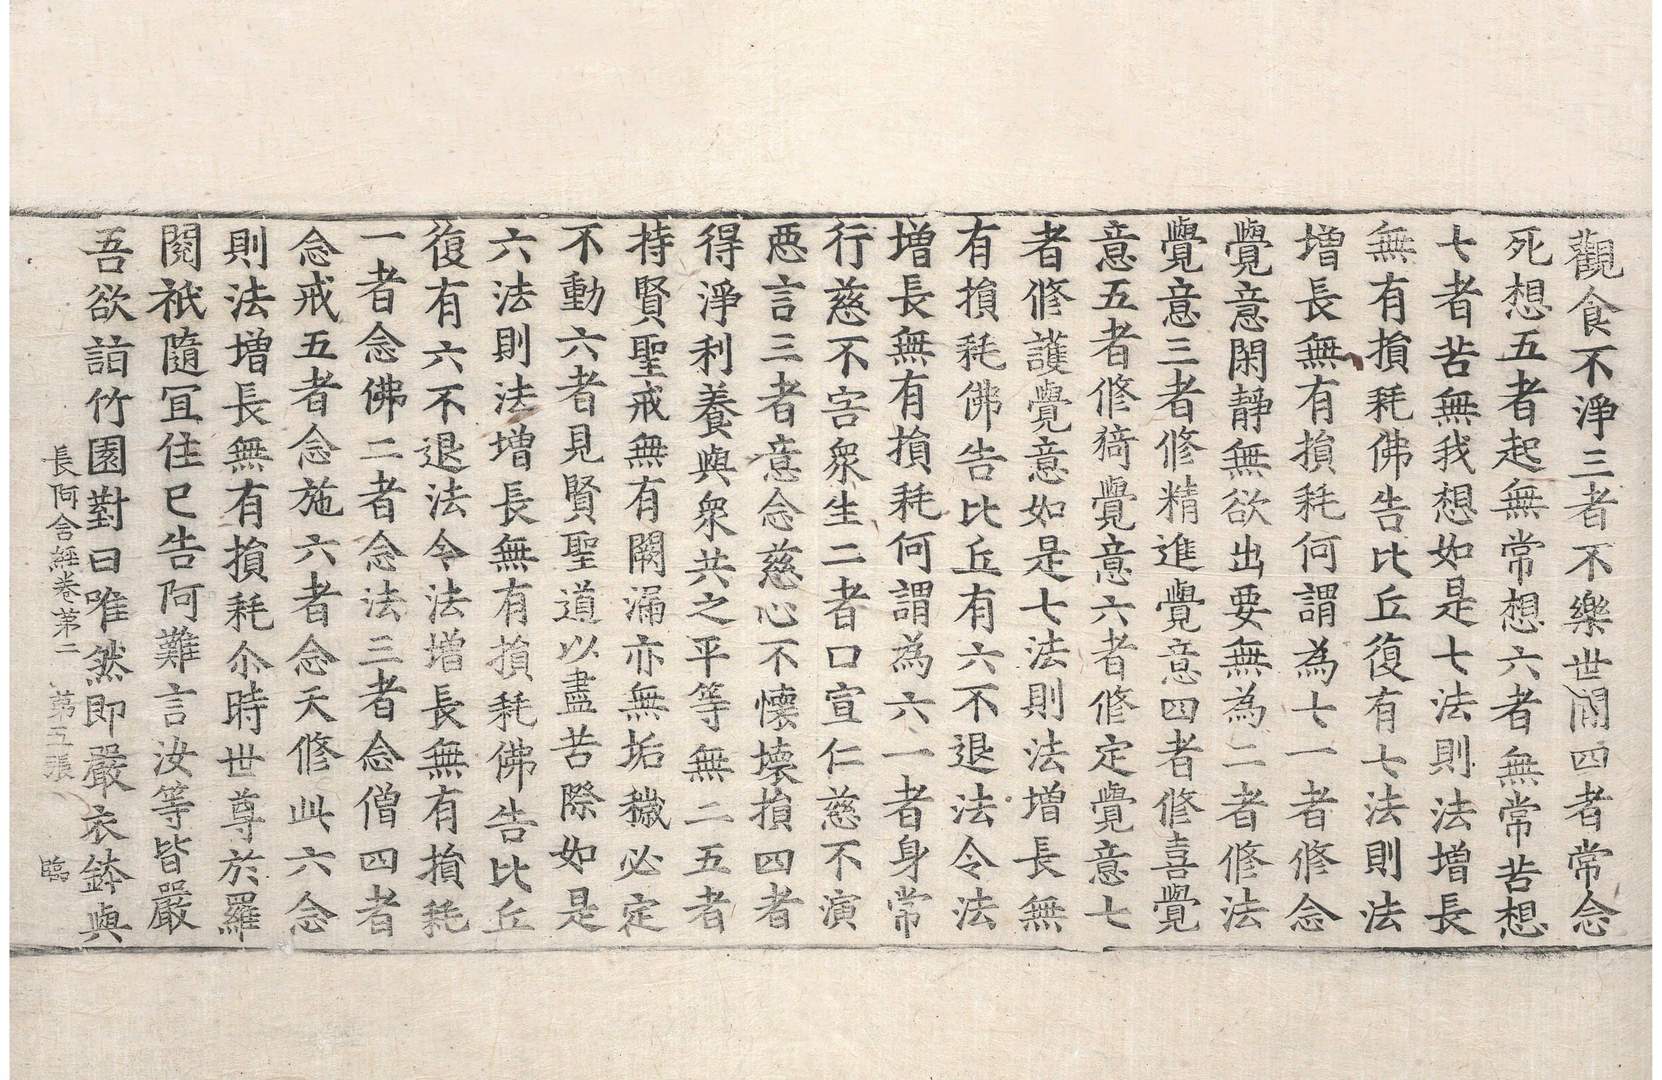 觀食不淨三者不樂世閒四者常念
死想五者起無常想六者無常苦想
七者苦無我想如是七法則法增長
無有損耗佛告比丘復有七法則法
增長無有損耗何謂為七一者修念
覺意閑靜無欲出要無為二者修法
覺意三者修精進覺意四者修喜覺
意五者修猗覺意六者修定覺意七
者修護覺意如是七法則法增長無
有損耗佛告比丘有六不退法令法
增長無有損耗何謂為六一者身常
行慈不害衆生二者口宣仁慈不演
惡言三者意念慈心不懷壞損四者
得淨利養與衆共之平等無二五者
持賢聖戒無有闕漏亦無垢穢必定
不動六者見賢聖道以盡苦際如是
六法則法增長無有損耗佛告比丘
復有六不退法令法增長無有損耗
一者念佛二者念法三者念僧四者
念戒五者念施六者念天修此六念
則法增長無有損耗尒時世尊於羅
閱祇隨宜住已告阿難言汝等皆嚴
吾欲詣竹園對曰唯然即嚴衣鉢與
長阿含經卷第二 第五張 臨